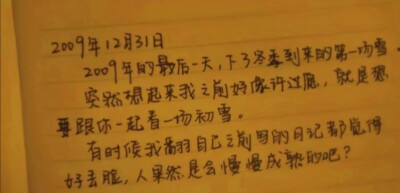 2009年12月31日
2009年的最后一天,下了冬季到来的第一场雪。
突然想起来我之前好像许过愿,就是想
要跟你一起看一场初雪。
有时候我翻羽自己之前写的日记都觉得
好丢脸,人果然是会慢慢成熟的吧?